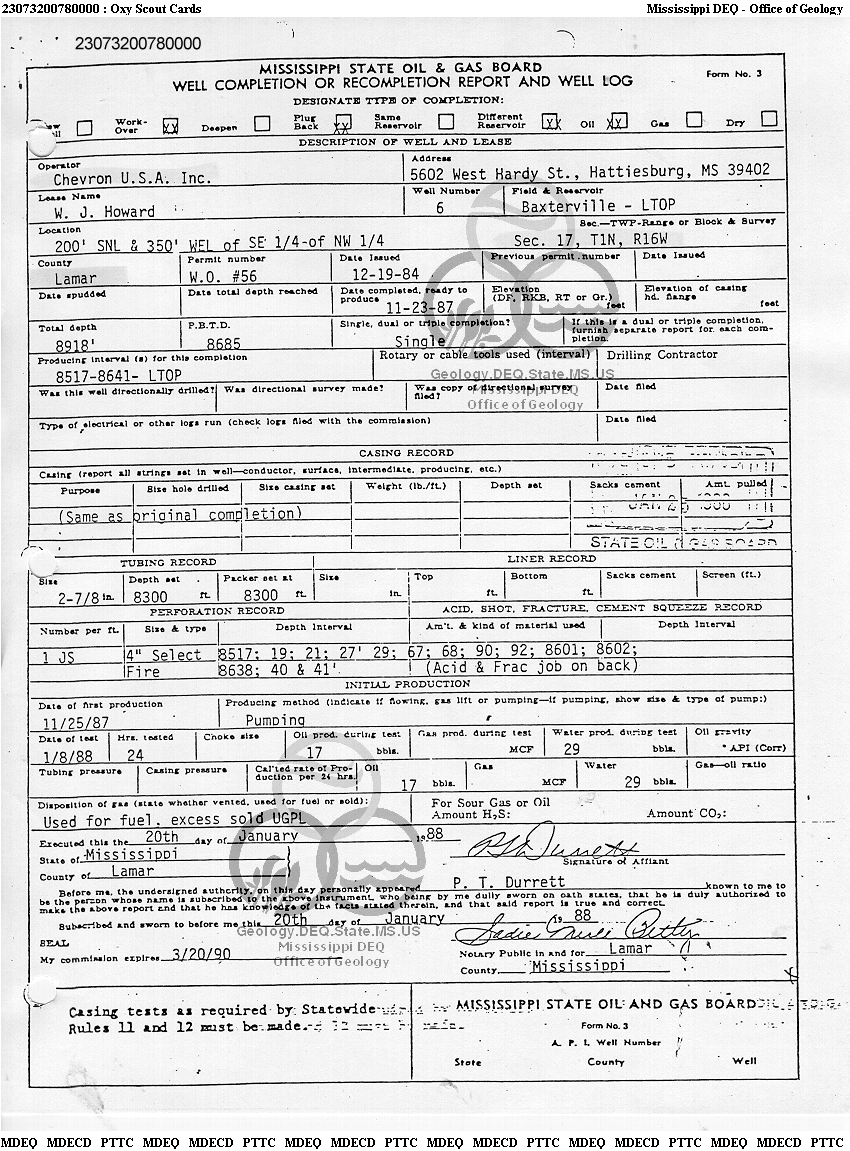 23073200780000 : Oxy Scout Cards Mississippi DEQ - Office of Geology
23073200780000
MISSISSIPPI STATE OIL & GAS BOARD
WELL COMPLETION OR RECOMPLETION REPORT AND WELL LOG Form No. 3
DESIGNATE TYPE OF COMPLETION:
Work-Over XX Deepen Plug Back XX Same Reservoir Different Reservoir XX Oil XX Gas Dry
DESCRIPTION OF WELL AND LEASE
Operator Address
Chevron U.S.A. Inc. 5602 West Hardy St., Hattiesburg, MS 39402
Lease Name Well Number Field & Reservoir
W. J. Howard 6 Baxterville - LTOP
Location Sec.—TWP-Range or Block & Survey
200' SNL & 350' WEL of SE 1/4-of NW 1/4 Sec. 17, T1N, R16W
County Permit number Date Issued Previous permit number Date Issued
Lamar W.O. #56 12-19-84
Date spudded Date total depth reached Date completed, ready to produce Elevation (DF, RKB, RT or Gr.) feet Elevation of casing hd. flange feet
11-23-87
Total depth P.B.T.D. Single, dual or triple completion? If this is a dual or triple completion, furnish separate report for each completion.
8918' 8685 Single
Producing interval (s) for this completion Rotary or cable tools used (interval) Drilling Contractor
8517-8641- LTOP
Geology.DEQ.State.MS.US
Was this well directionally drilled? Was directional survey made? Was copy of directional survey filed? Date filed
Mississippi DEQ
Office of Geology
Type of electrical or other logs run (check logs filed with the commission) Date filed
CASING RECORD
Casing (report all strings set in well—conductor, surface, intermediate, producing, etc.)
Purpose Size hole drilled Size casing set Weight (lb./ft.) Depth set Sacks cement Amt. pulled
(Same as original completion)
STATE OIL & GAS BOARD
TUBING RECORD LINER RECORD
Size Depth set Packer set at Size Top Bottom Sacks cement Screen (ft.)
2-7/8 in. 8300 ft. 8300 ft. in. ft. ft.
PERFORATION RECORD ACID, SHOT, FRACTURE, CEMENT SQUEEZE RECORD
Number per ft. Size & type Depth Interval Am't. & kind of material used Depth Interval
1 JS 4" Select 8517; 19; 21; 27' 29; 67; 68; 90; 92; 8601; 8602;
Fire 8638; 40 & 41'. (Acid & Frac job on back)
INITIAL PRODUCTION
Date of first production Producing method (indicate if flowing, gas lift or pumping—if pumping, show size & type of pump:)
11/25/87 Pumping
Date of test Hrs. tested Choke size Oil prod. during test Gas prod. during test Water prod. during test Oil gravity
1/8/88 24 17 bbls. MCF 29 bbls. ° API (Corr)
Tubing pressure Casing pressure Cal'ted rate of Production per 24 hrs. Oil Gas Water Gas—oil ratio
17 bbls. MCF 29 bbls.
Disposition of gas (state whether vented, used for fuel or sold): For Sour Gas or Oil
Used for fuel. excess sold UGPL Amount H2S: Amount CO2:
Executed this the 20th day of January 1988
State of Mississippi Signature of Affiant
County of Lamar
Before me, the undersigned authority, on this day personally appeared P. T. Durrett known to me to
be the person whose name is subscribed to the above instrument, who being by me dully sworn on oath states, that he is duly authorized to
make the above report and that he has knowledge of the facts stated therein, and that said report is true and correct.
Subscribed and sworn to before me this 20th day of January 1988
Geology.DEQ.State.MS.US
SEAL Mississippi DEQ Notary Public in and for Lamar
My commission expires 3/20/90 Office of Geology County Mississippi
Casing tests as required by Statewide
Rules 11 and 12 must be made.
MISSISSIPPI STATE OIL AND GAS BOARD
Form No. 3
A. P. I. Well Number
State County Well
MDEQ MDECD PTTC MDEQ MDECD PTTC MDEQ MDECD PTTC MDEQ MDECD PTTC MDEQ MDECD PTTC MDEQ MDECD PTTC